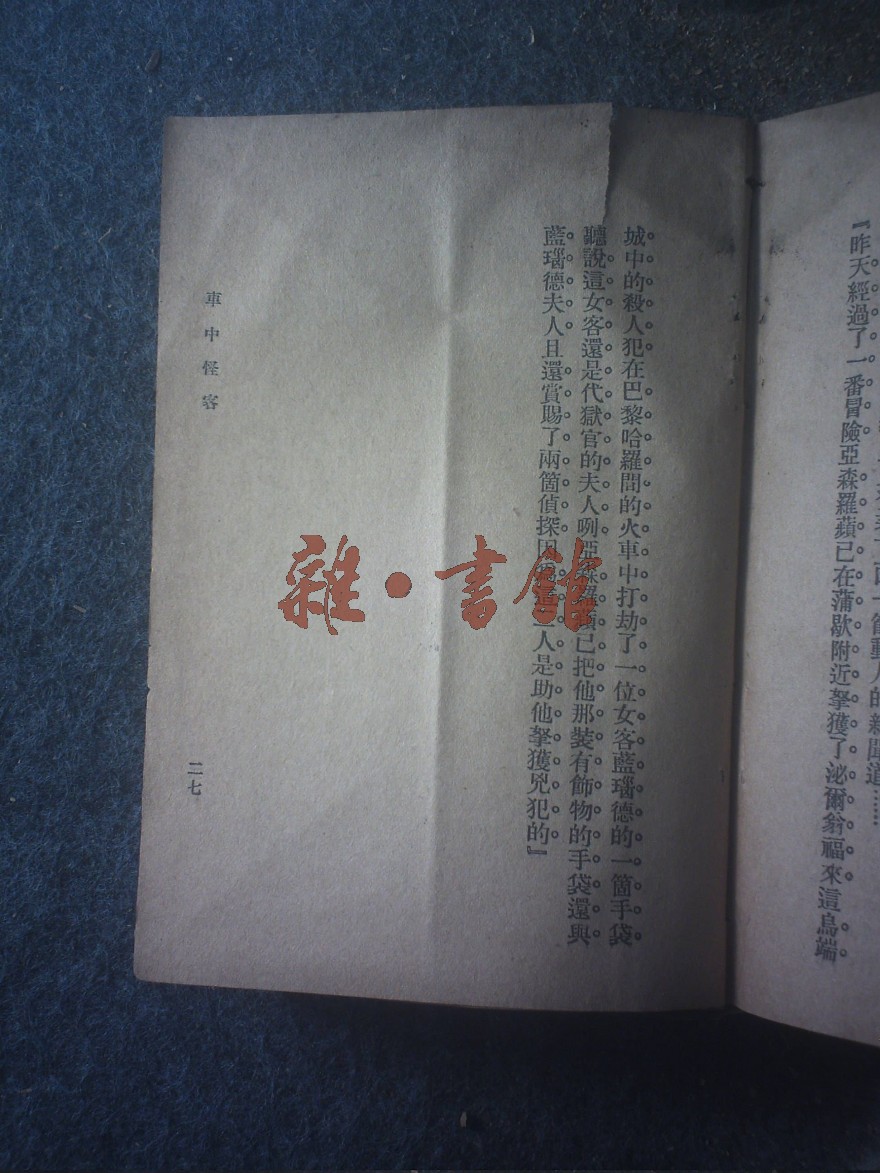 動人的新聞道……
『昨天經過了一番冒險亞森羅蘋已在蒲歇附近拏獲了泌爾翁福來這烏端
城中的殺人犯在巴黎哈羅間的火車中打劫了一位女客藍瑙德的一箇手袋
聽說這女客還是代獄官的夫人咧亞森羅蘋已把他那裝有飾物的手袋還與
藍瑙德夫人且還賞賜了兩箇偵探因爲這二人是助他拏獲兇犯的』
車中怪客
二七
雜·書館